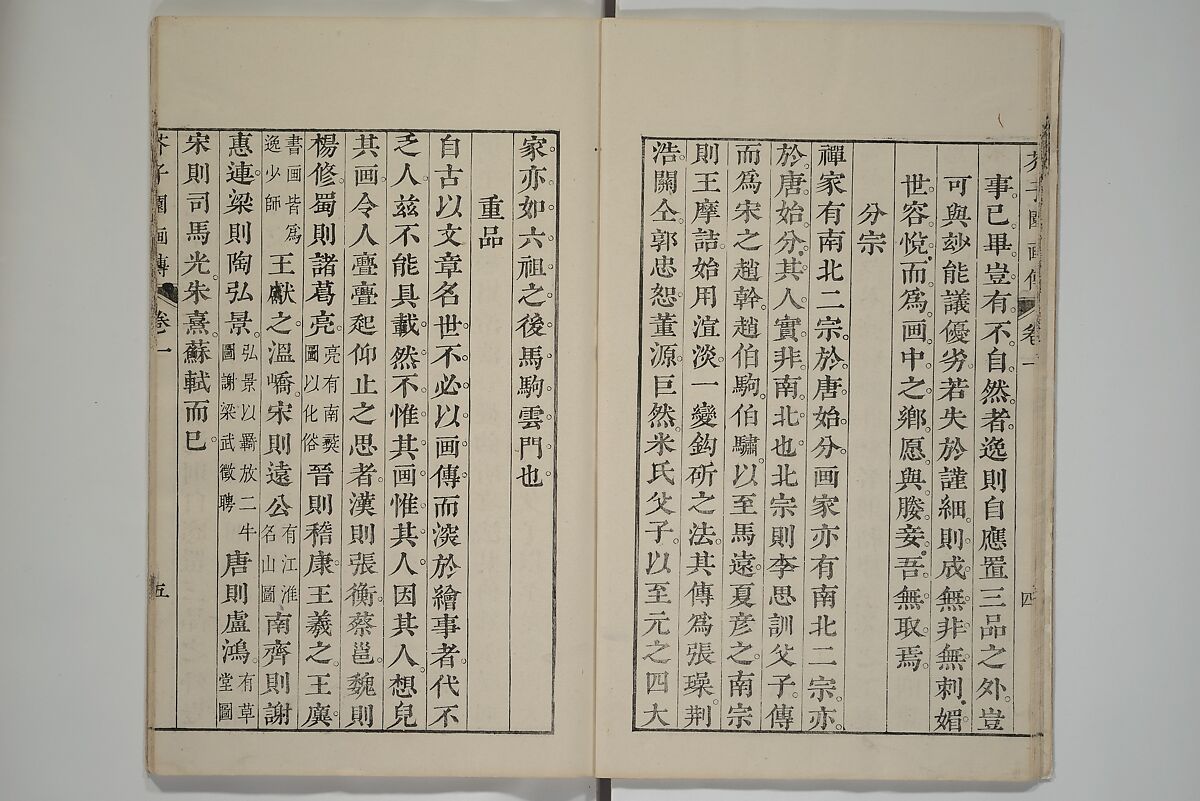 芥子園画傳 卷一 四
事已畢豈有不自然者逸則自應置三品之外豈
可與玅能議優劣若失於謹細則成無非無刺媚
世容悅而為画中之鄉愿與媵妾吾無取焉
分宗
禪家有南北二宗於唐始分画家亦有南北二宗亦
於唐始分其人實非南北也北宗則李思訓父子傳
而為宋之趙幹趙伯駒伯驌以至馬遠夏彥之南宗
則王摩詰始用渲淡一變鈎斫之法其傳為張璪荆
浩關仝郭忠恕董源巨然米氏父子以至元之四大
家亦如六祖之後馬駒雲門也
重品
自古以文章名世不必以画傳而深於繪事者代不
乏人兹不能具載然不惟其画惟其人因其人想見
其画令人亹亹起仰止之思者漢則張衡蔡邕魏則
楊修蜀則諸葛亮亮有南彝圖以化俗晉則嵇康王羲之王廙
書画皆為逸少師王獻之溫嶠宋則遠公有江淮名山圖南齊則謝
惠連梁則陶弘景弘景以羈放二牛圖謝梁武徵聘唐則盧鴻有草堂圖
宋則司馬光朱熹蘇軾而已
芥子園画傳 卷一 五